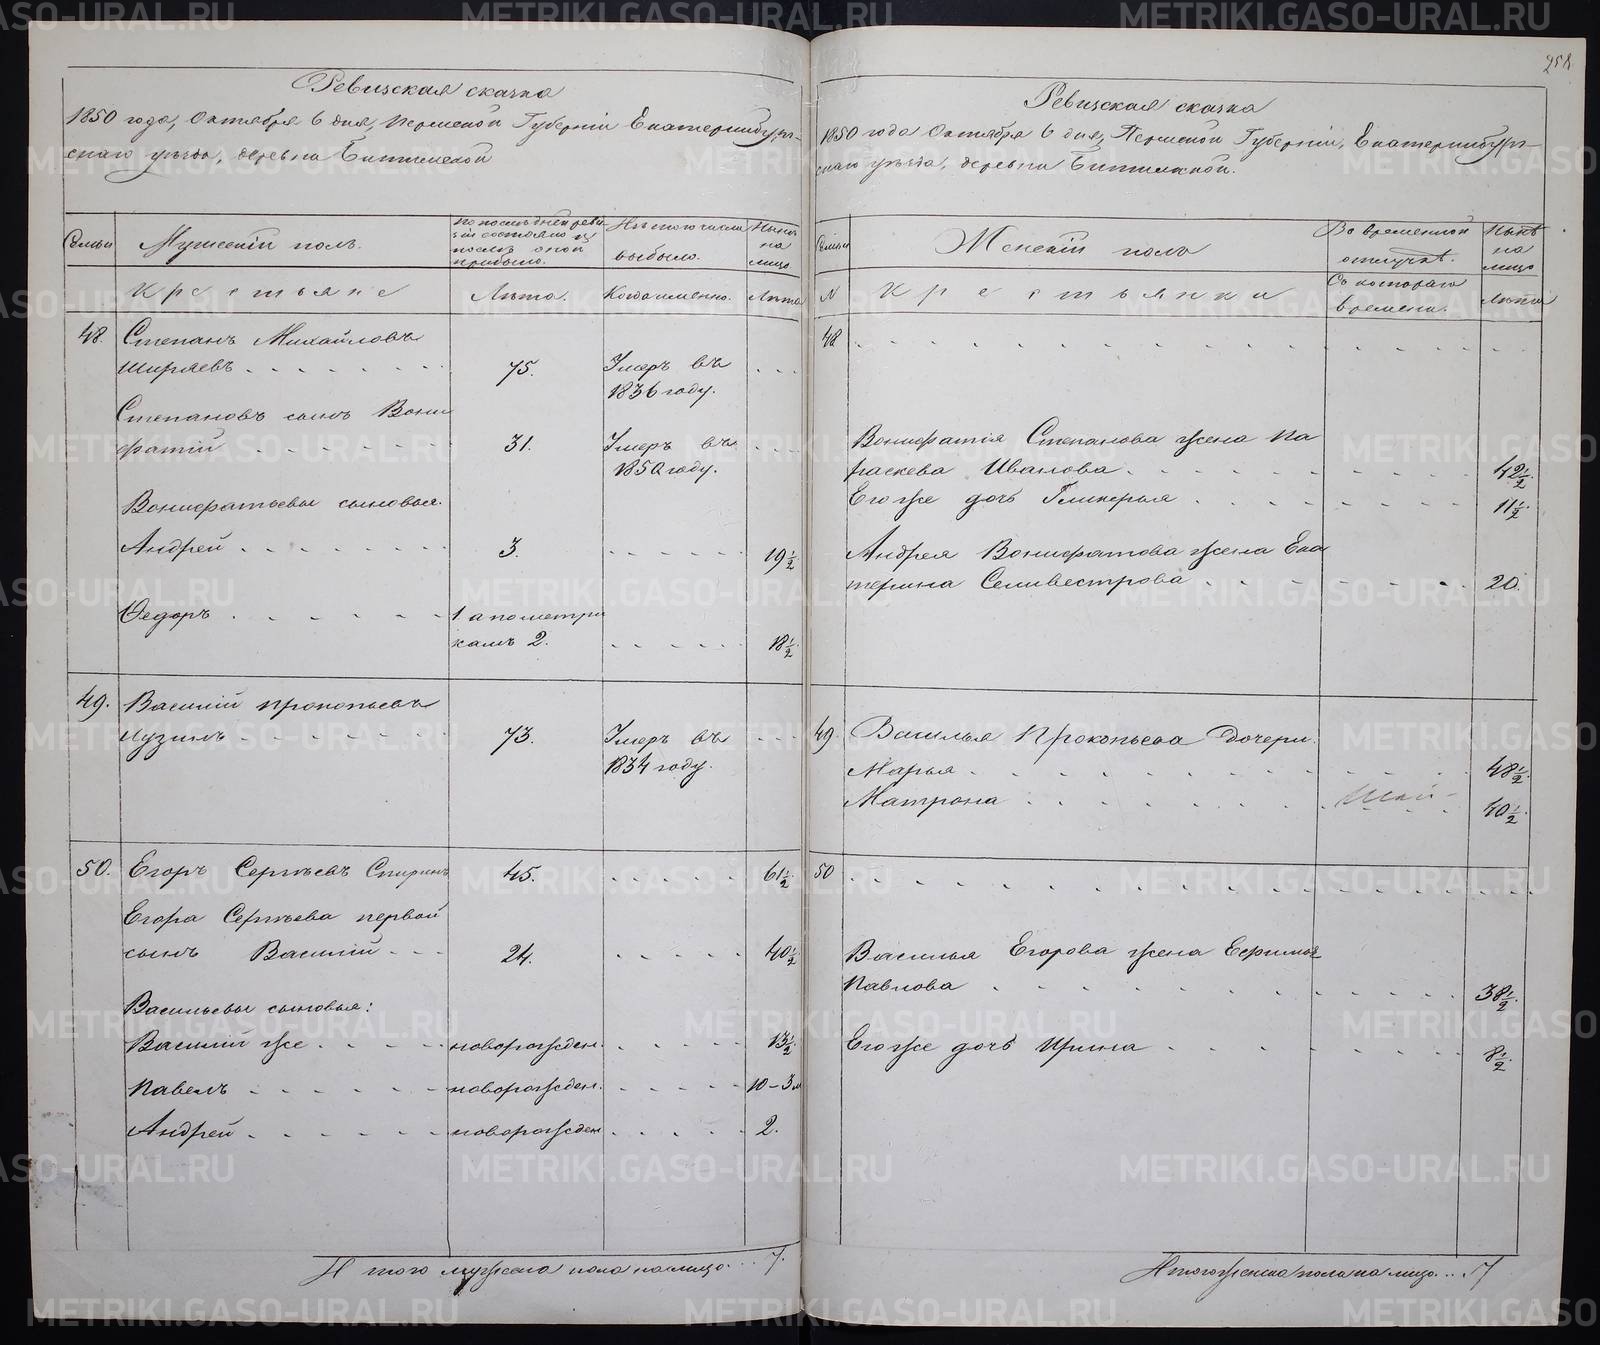 Ревизская сказка
1850 года, Октября 6 дня, Пермской Губернiи Екатеринбург-
скаго уѣзда, деревни Битимской
Семьи
Мужескiй полъ.
По последней реви-
зiи состояло и
после оной
прибыло.
Изъ того числа
выбыло.
Нынѣ
на
лицо
Крестьяне
Лѣта.
Когда именно.
Лѣта
48. Степанъ Михайловъ
Ширяевъ 75. Умеръ въ
1836 году.
Степановъ сынъ Вони-
фатiй 31. Умеръ въ
1850 году.
Вонифатьевы сыновья.
Андрей 3. 19 ½
Ѳедоръ 1 а по метри
камъ 2. 18 ½
49. Василiй Прокопьевъ
Лузинъ 73. Умеръ въ
1834 году.
50. Егоръ Сергѣевъ Спиринъ 45. 61 ½
Егора Сергѣева первой
сынъ Василiй 24. 40 ½
Васильевы сыновья:
Василiй же новорожден. 13 ½
Павелъ новорожден. 10-3 м
Андрей новорожден 2.
Итого мужеска пола на лицо... 7.
258
Ревизская сказка
1850 года Октября 6 дня, Пермской Губернiи, Екатеринбург-
скаго уѣзда, деревни Битимской.
Семьи
Женскiй полъ
Во временной
отлучкѣ.
Нынѣ
на
лицо
N
Крестьянки
Съ котораго
времени.
Лѣта
48
Вонифатiя Степанова жена Па
раскева Иванова. 42 ½
Его же дочь Гликерья 11 ½
Андрея Вонифатова жена Ека
терина Селивестрова 20.
49 Василья Прокопьева дочери.
Марья 48 ½
Матрона 40 ½
50
Василья Егорова жена Ефимья
Павлова 38 ½
Его же дочь Ирина 8 ½
Итого женска пола на лицо... 7
METRIKI.GASO-URAL.RU